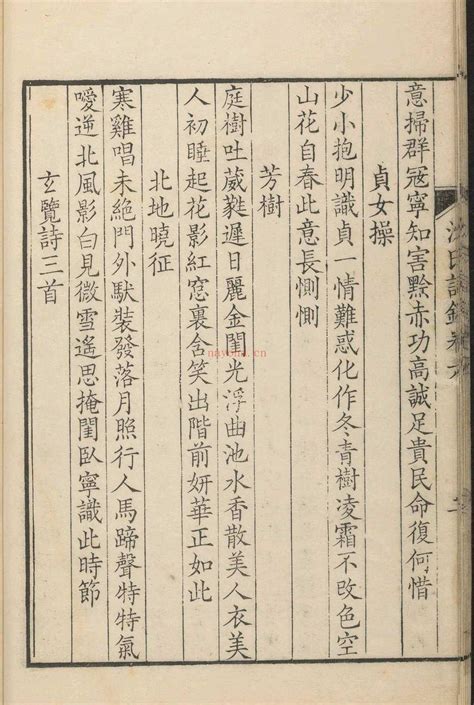 意掃群冦寧知害黔赤功高誠足貴民命復何惜
貞女操
少小抱明識貞一情難惑化作冬青樹凌霜不改色空
山花自春此意長惻惻
芳樹
庭樹吐葳蕤遲日麗金閨光浮曲池水香散美人衣美
人初睡起花影紅窓裏含笑出階前妍華正如此
北地曉征
寒雞唱未絶門外馱装發落月照行人馬蹄聲特特氣
噯逆北風影白見微雪遥思掩閨臥寧識此時節
玄覽詩三首
nayona.cn